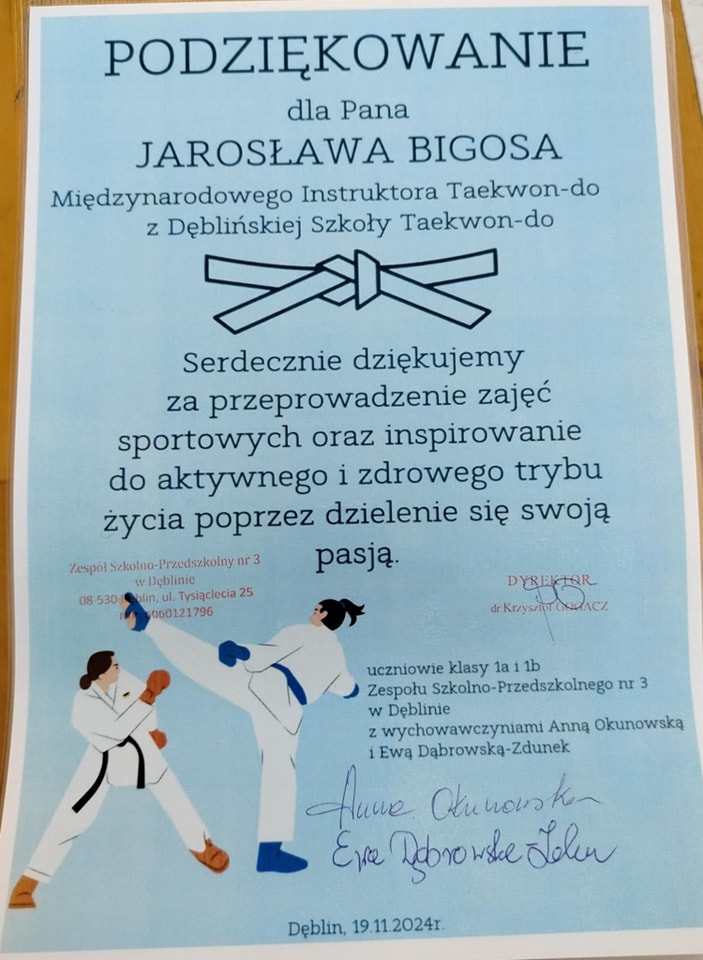 PODZIĘKOWANIE
dla Pana
JAROSŁAWA BIGOSA
Międzynarodowego Instruktora Taekwon-do
z Dęblińskiej Szkoły Taekwon-do
Serdecznie dziękujemy
za przeprowadzenie zajęć
sportowych oraz inspirowanie
do aktywnego i zdrowego trybu
życia poprzez dzielenie się swoją
pasją.
Zespół Szkolno-Przedszkolny nr 3
w Dęblinie
08-530 ul. Tysiąclecia 25
5060121796
DYREKTOR
dr Krzysztof GOGACZ
uczniowie klasy 1a i 1b
Zespołu Szkolno-Przedszkolnego nr 3
w Dęblinie
z wychowawczyniami Anną Okunowską
i Ewą Dąbrowską-Zdunek
Anna Okunowska
Ewa Dąbrowska-Zdun
Dęblin, 19.11.2024r.